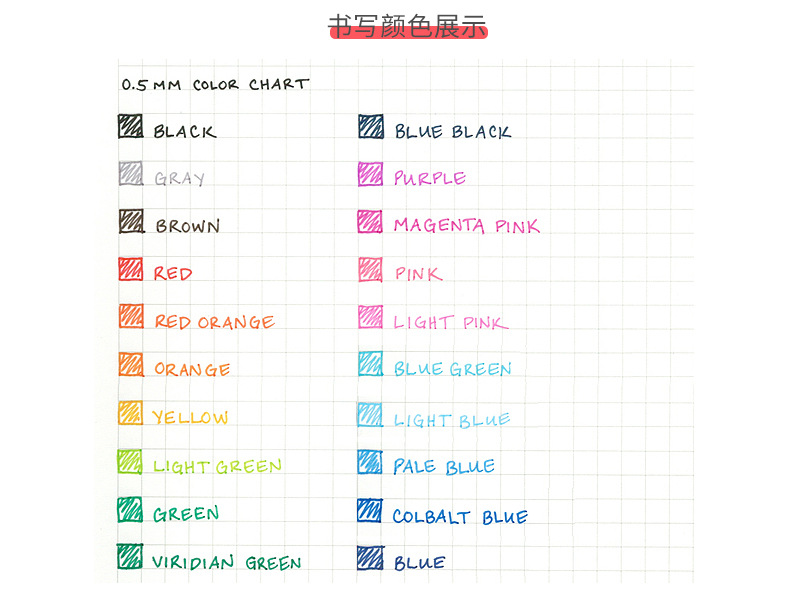 书写颜色展示
0.5 MM COLOR CHART
BLACK
GRAY
BROWN
RED
RED ORANGE
ORANGE
YELLOW
LIGHT GREEN
GREEN
VIRIDIAN GREEN
BLUE BLACK
PURPLE
MAGENTA PINK
PINK
LIGHT PINK
BLUE GREEN
LIGHT BLUE
PALE BLUE
COLBALT BLUE
BLUE